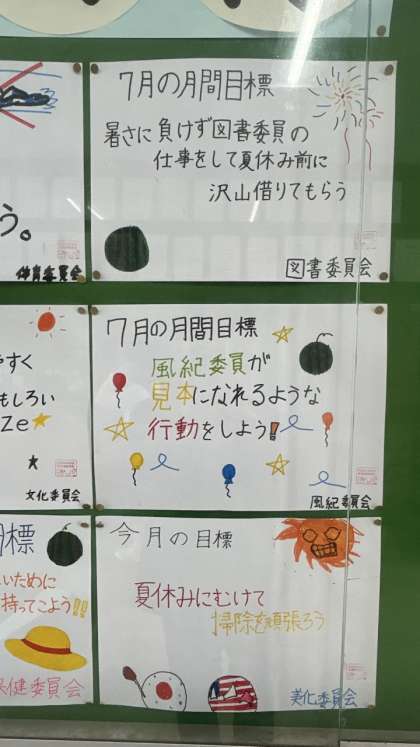 う。
体育委員会
7月の月間目標
暑さに負けず図書委員の
仕事をして夏休み前に
沢山借りてもらう
図書委員会
やすく
もしろい
ze
文化委員会
7月の月間目標
風紀委員が
見本になれるような
行動をしよう!
風紀委員会
目標
いために
持ってこよう!!
保健委員会
今月の目標
夏休みにむけて
掃除を頑張ろう
美化委員会